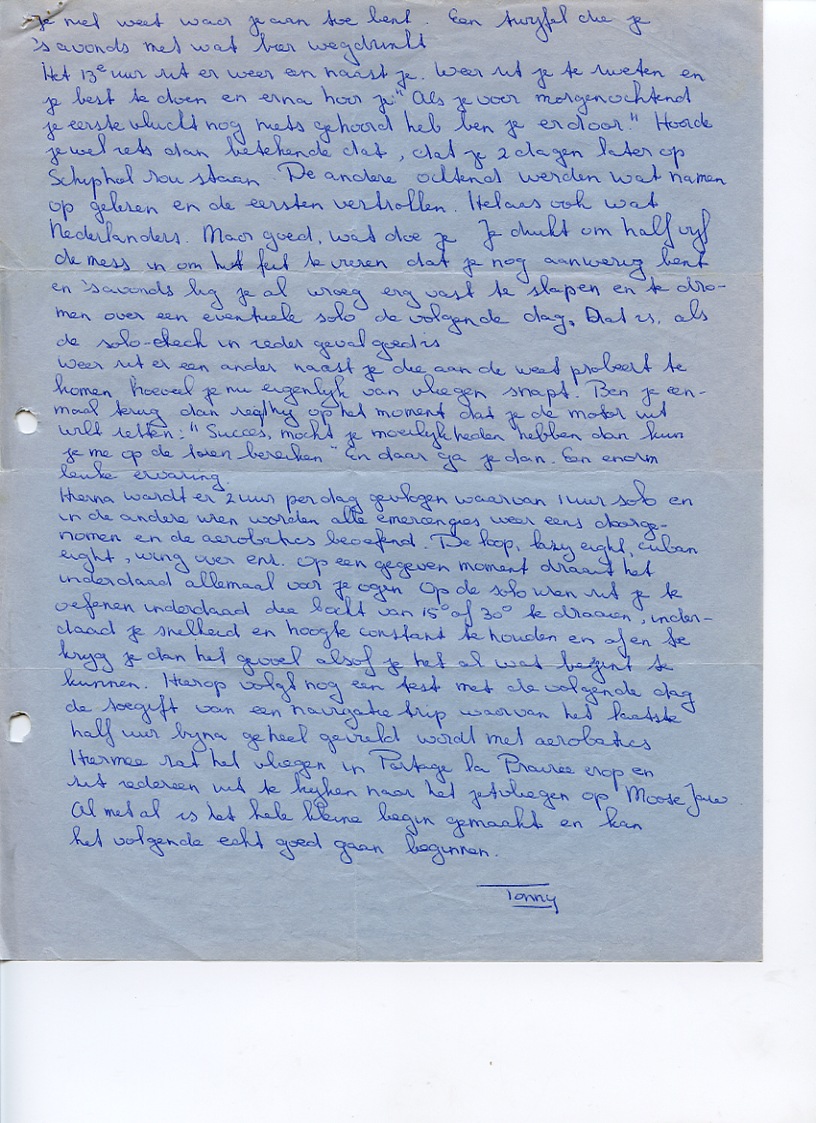 je niet weet waar je aan toe bent. Een twijfel die je
's avonds met wat bier wegdrinkt
Het 13e uur zit er weer een naast je. Weer zit je te zweten en
je best te doen en erna hoor je "Als je voor morgenochtend
je eerste vlucht nog niets gehoord heb ben je er door." Hoorde
je wel iets dan betekende dat, dat je 2 dagen later op
Schiphol zou staan. De andere ochtend werden wat namen
op gelezen en de eersten vertrokken. Helaas ook wat
Nederlanders. Maar goed, wat doe je Je duikt om half vijf
de mess in om het feit te vieren dat je nog aanwezig bent
en 's avonds lig je al vroeg erg vast te slapen en te dro-
men over een eventuele solo de volgende dag, Dat is, als
de solo-check in ieder geval goed is
Weer zit er een ander naast je die aan de weet probeert te
komen hoeveel je nu eigenlijk van vliegen snapt. Ben je een-
maal terug dan zegt hij op het moment dat je de motor uit
wilt zetten: "Succes, mocht je moeilijkheden hebben dan kun
je me op de toren bereiken" En daar ga je dan. Een enorm
leuke ervaring.
Hierna wordt er 2 uur per dag gevlogen waarvan 1 uur solo en
in de andere uren worden alle emergencies weer eens doorge-
nomen en de aerobatics beoefend. De loop, lazy eight, cuban
eight, wing over enz. Op een gegeven moment draait het
inderdaad allemaal voor je ogen Op de solo uren zit je te
oefenen inderdaad die bocht van 15° of 30° te draaien, inder-
daad je snelheid en hoogte constant te houden en af en te
krijg je dan het gevoel alsof je het al wat begint te
kunnen. Hierop volgt nog een test met de volgende dag
de toegift van een navigatie trip waarvan het laatste
half uur bijna geheel gevuld wordt met aerobatics
Hiermee zat het vliegen in Portage la Prairie erop en
zit iedereen uit te kijken naar het jetvliegen op Moose Jaw
Al met al is het hele kleine begin gemaakt en kan
het volgende echt goed gaan beginnen.
Tonny